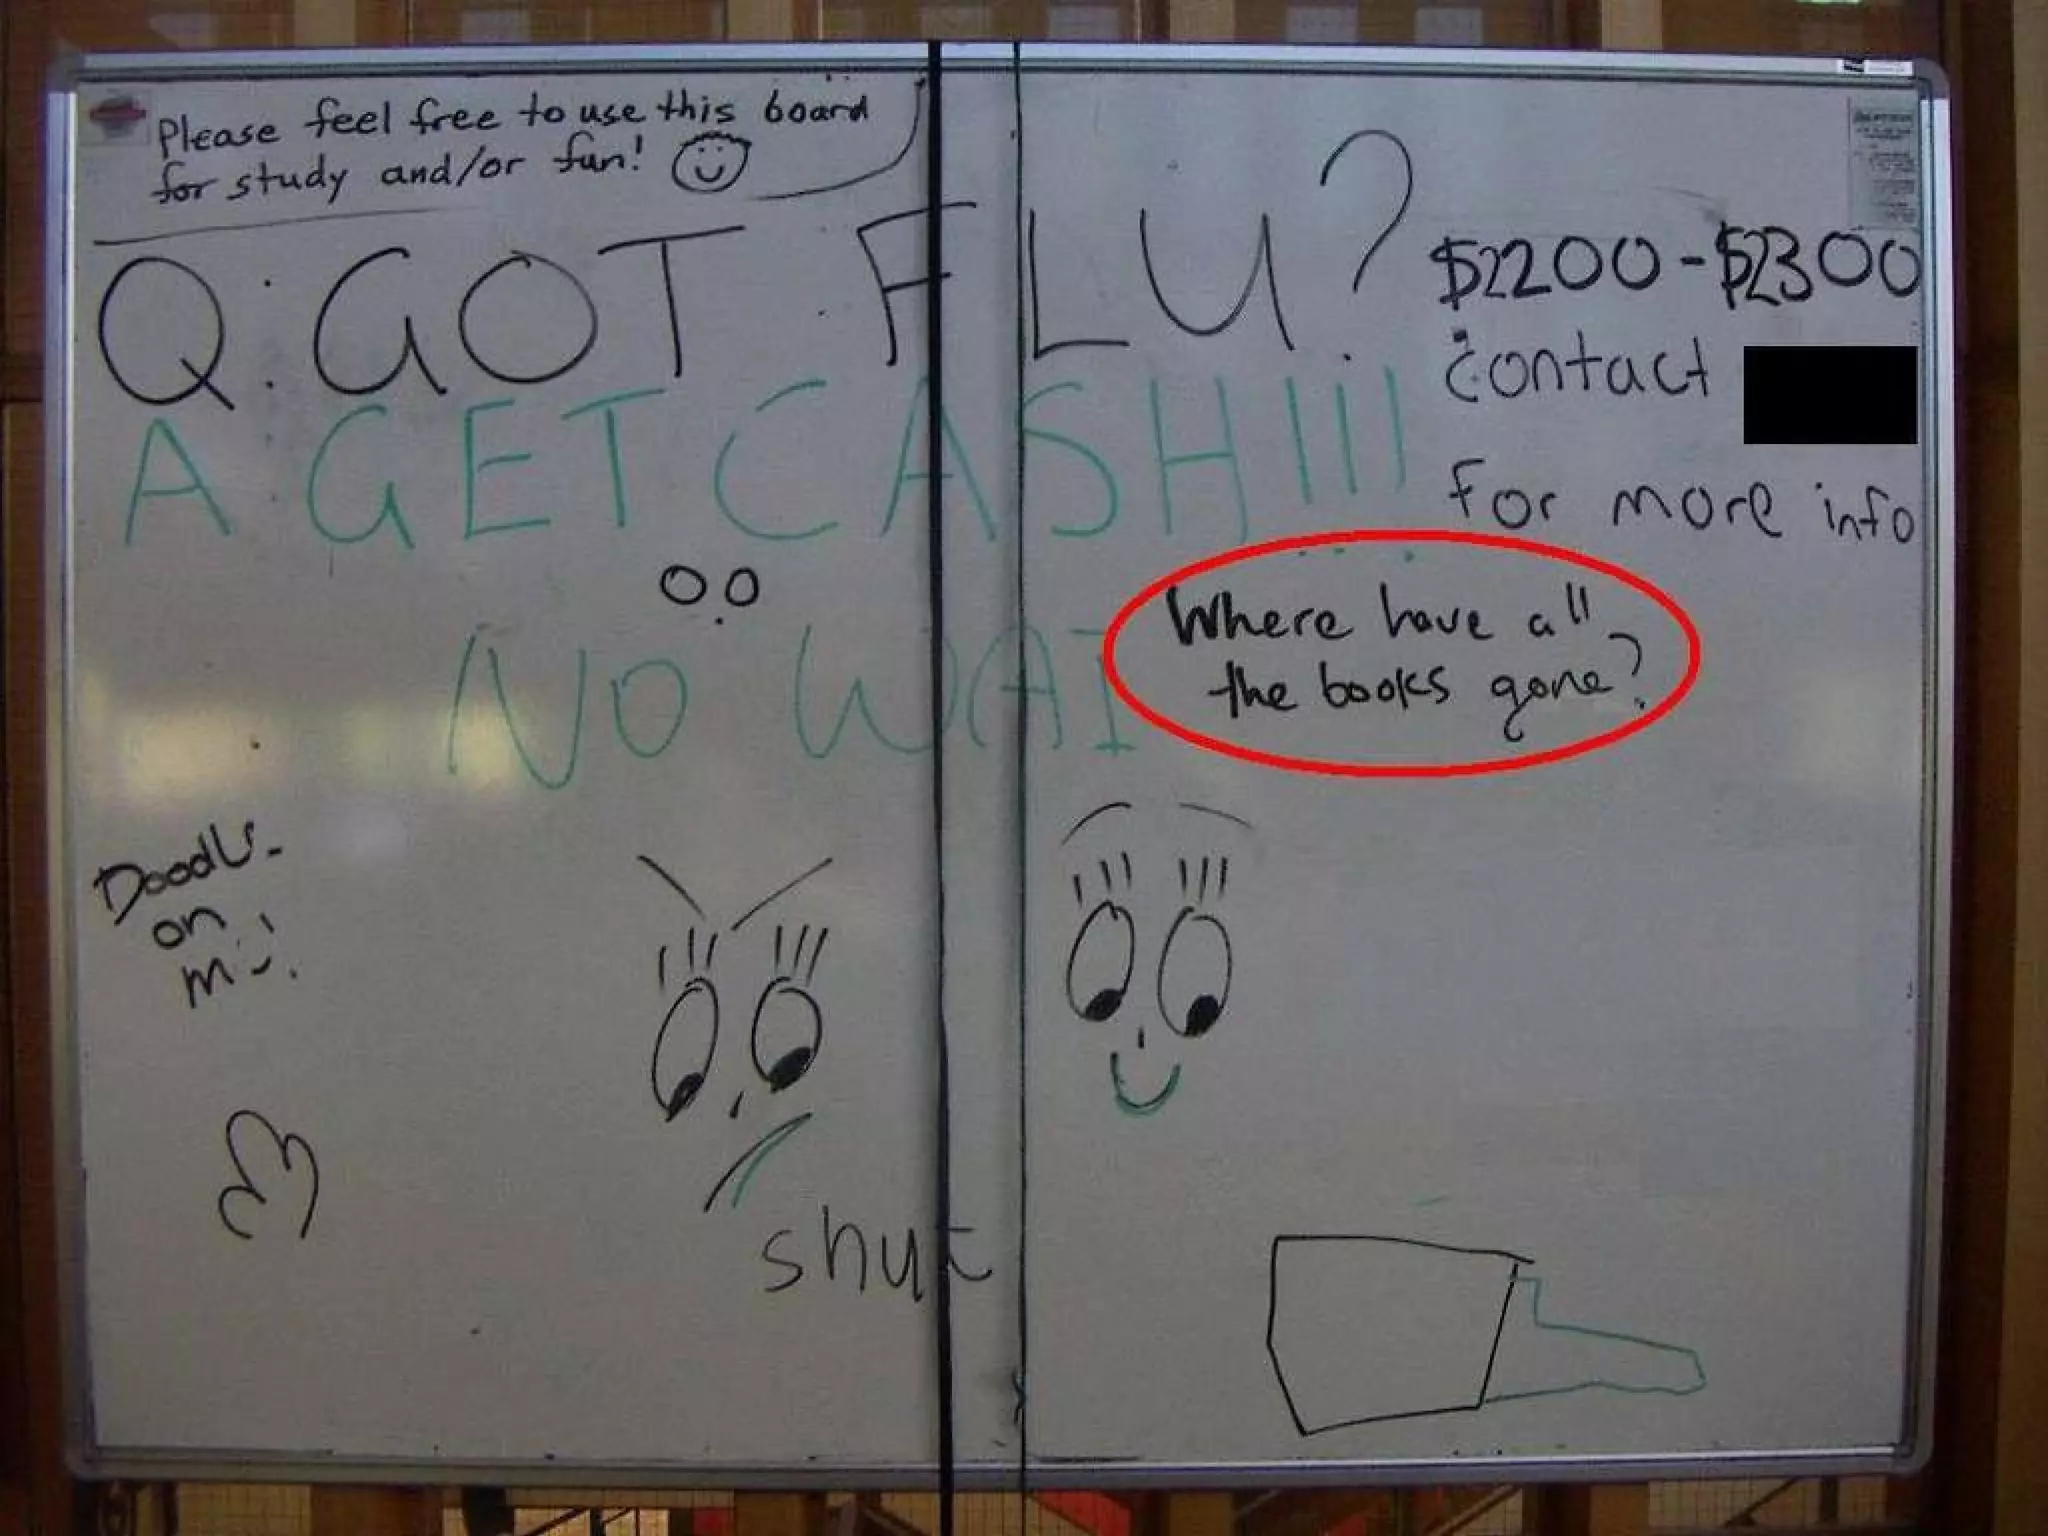 Please feel free to use this board
for study and/or fun!
Q: GOT FLU?
$2200-$2300
contact
for more info
A GET CASH!!!
NO WAI
Where have all
the books gone?
Doodle
on
me!
shut